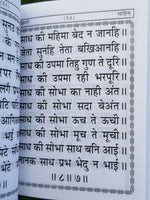 (६६) साहिब
साध की महिमा बेद न जानहि॥
जेता सुनहि तेता बखिआनहि॥
साध की उपमा तिहु गुण ते दूरि॥
साध की उपमा रही भरपूरि॥
साध की सोभा का नाही अंत॥
साध की सोभा सदा बेअंत॥
साध की सोभा ऊच ते ऊची॥
साध की सोभा मूच ते मूची॥
साध की सोभा साध बनि आई॥
नानक साध प्रभ भेदु न भाई॥
॥८॥७॥